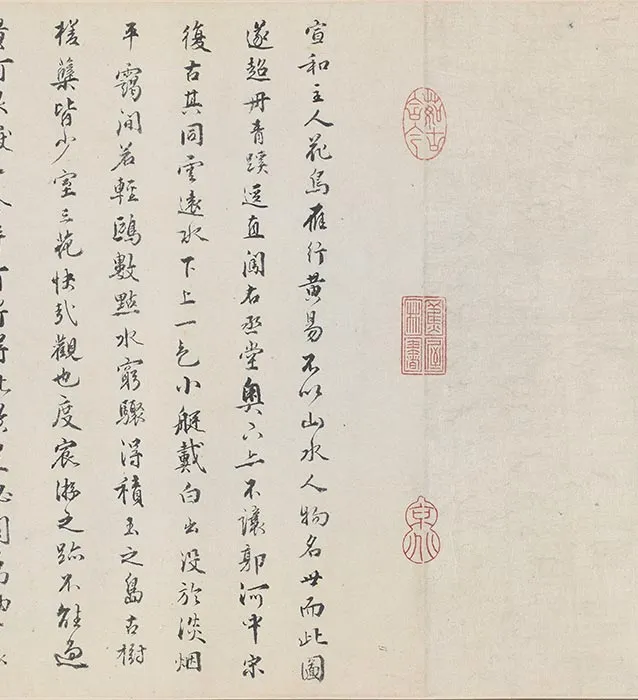 茹古含今
蕉林書屋
宣和主人花鳥雁行黃易不以山水人物名世而此圖
遂超丹青蹊逕直闖右丞堂奧下亦不讓郭河中宋
復古其同雲遠水下上一色小艇戴白出没於淡烟
平靄間若輕鷗數點水窮驟得積玉之島古樹
槎蘖皆少室三花快哉觀也度宸游之跡不能過